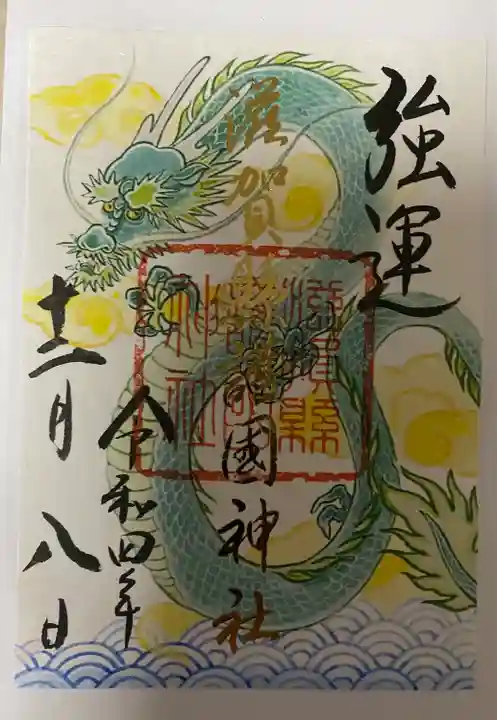 強運
滋賀縣護國神社
滋賀縣護國神社
令和四年
十二月八日